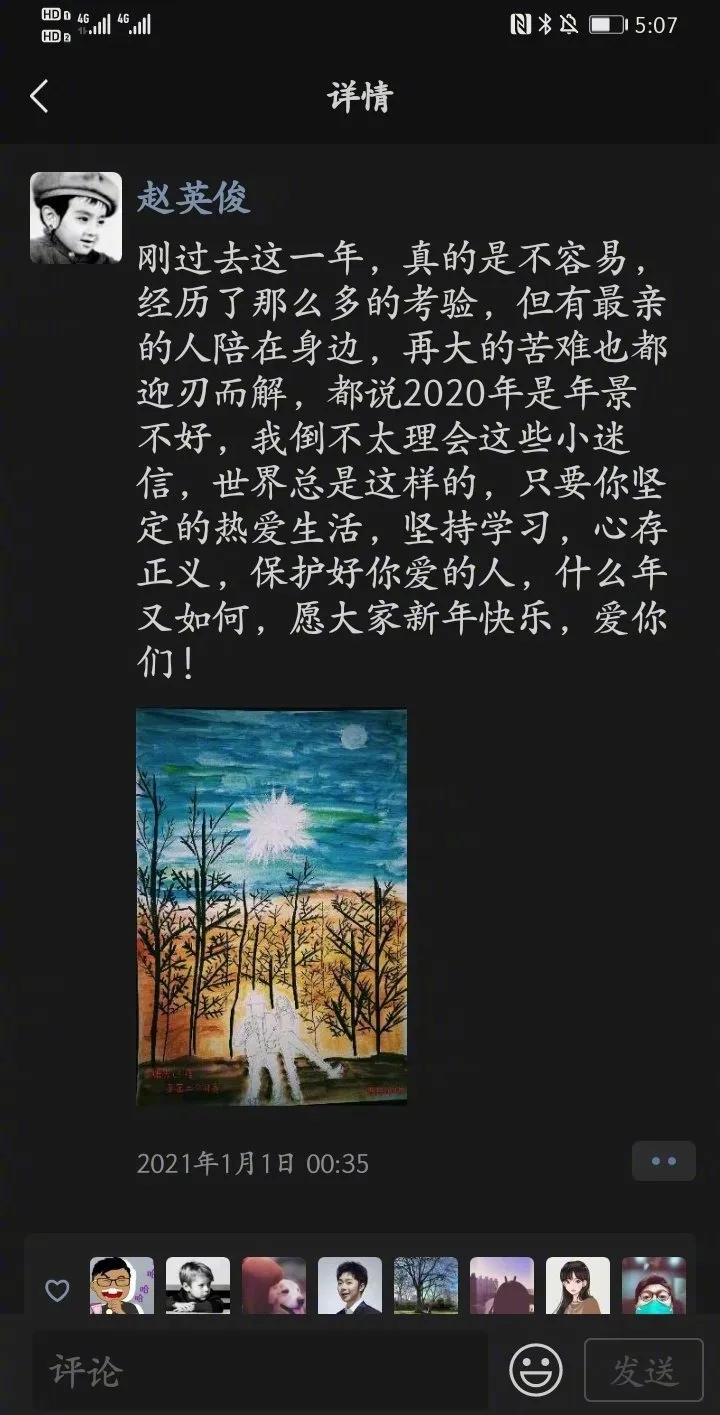 HD 1
4G
4G
HD 2
5:07
详情
赵英俊
刚过去这一年，真的是不容易，
经历了那么多的考验，但有最亲
的人陪在身边，再大的苦难也都
迎刃而解，都说2020年是年景
不好，我倒不太理会这些小迷
信，世界总是这样的，只要你坚
定的热爱生活，坚持学习，心存
正义，保护好你爱的人，什么年
又如何，愿大家新年快乐，爱你
们！
2021年1月1日 00:35
哈
哈
哈
评论
发送